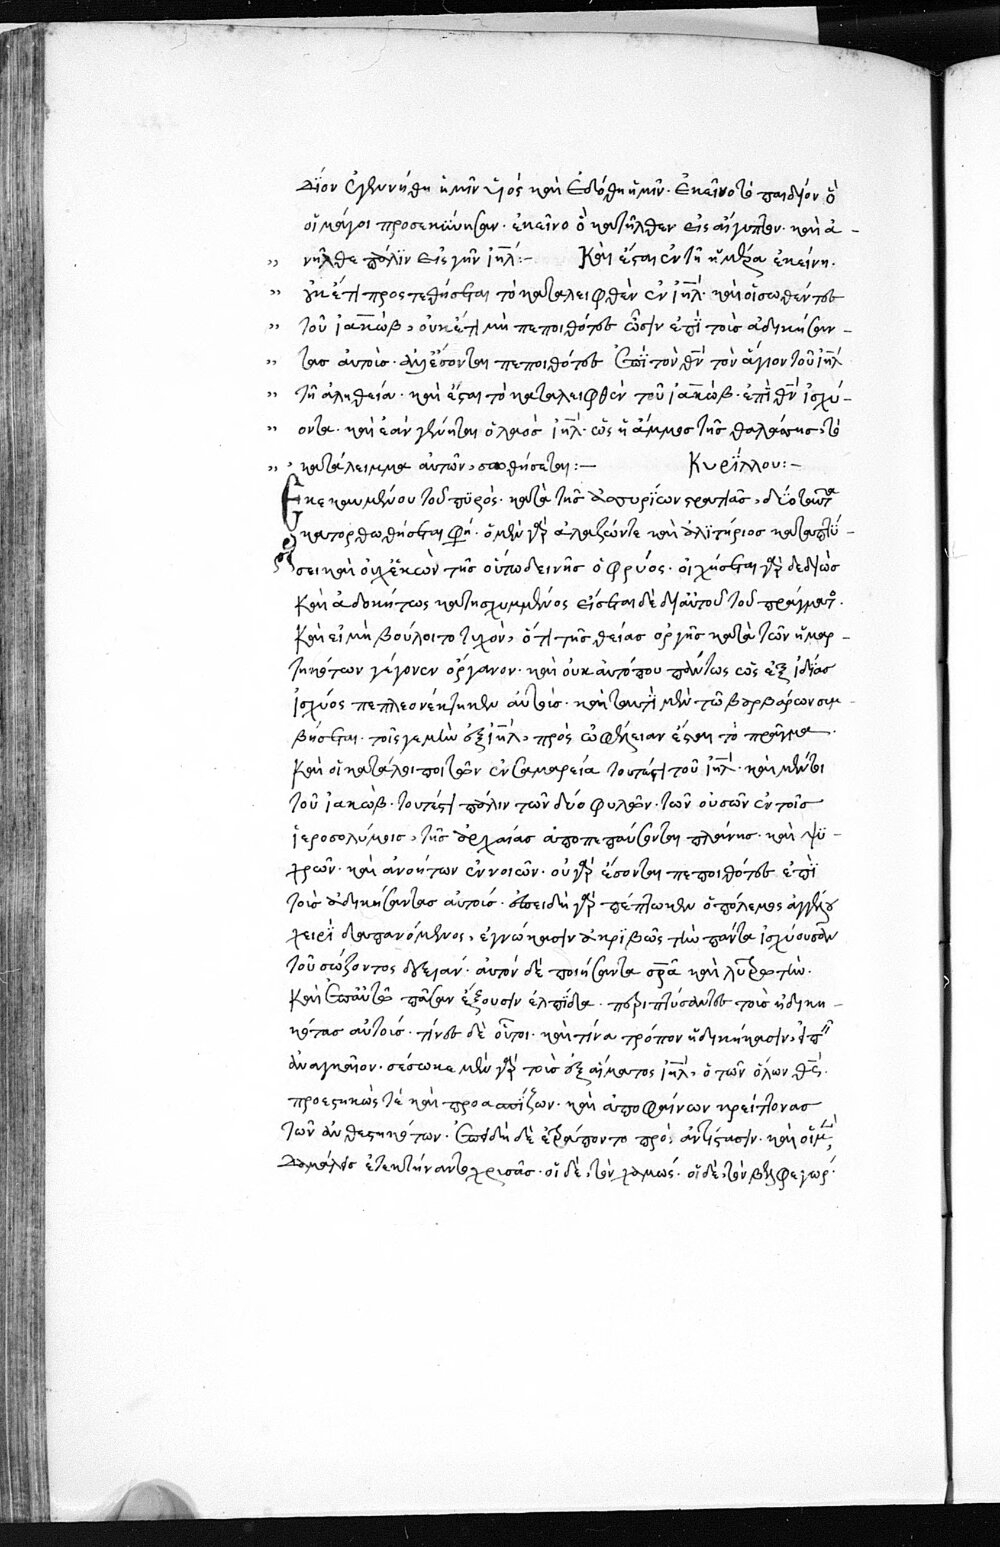 δίον ἐγεννήθη ἡμῖν υἱὸς καὶ ἐδόθη ἡμῖν· ἐκεῖνο τὸ παιδίον ὃ
οἱ μάγοι προσεκύνησαν· ἐκεῖνο ὃ κατῆλθεν εἰς αἴγυπτον· καὶ ἀ-
νῆλθε πάλιν εἰς γῆν ἰηλ̄:- Καὶ ἔσται ἐν τῇ ἡμέρα ἐκείνη·
οὐκέτι προστεθήσεται τὸ καταλειφθὲν ἐν ἰηλ̄· καὶ οἱ σωθέντες
τοῦ ἰακώβ, οὐκέτι μὴ πεποιθότες ὦσιν ἐπὶ τοῖς ἀδικήσαν-
τας αὐτοὶς· ἀλλ' ἔσονται πεποιθότες ἐπὶ τὸν θν̄ τὸν ἅγιον τοῦ ἰηλ̄
τῇ ἀληθεία· καὶ ἔσται τὸ καταλειφθὲν τοῦ ἰακώβ· ἐπὶ θν̄ ἰσχύ-
οντα· καὶ ἐὰν γένηται ὁ λαὸς ἰηλ̄· ὡς ἡ ἄμμος τῆς θαλάσσης, τὸ
κατάλειμμα αὐτῶν, σωθήσεται:- Κυρίλλου:-
Εκκεκαυμένου τοῦ πυρὸς· κατὰ τῆς ἀσσυρίων στρατιᾶς, δι' ὃ ταῦτα
κατορθωθήσεται φη· ὁ μὲν γὰρ ἀλαζών τε καὶ ἀλιτήριος καταπτύ-
σει καὶ οἰχ ἑκὼν τῆς οὕτω δεινῆς ὀφρύος· οἰχήσεται γὰρ δεδιὼς
Καὶ ἀδοκήτως κατησχυμμένος εἴσεται δὲ δι' αὐτοῦ τοῦ πράγματ·
Καὶ εἰ μὴ βούλοιτο τυχὸν, ὅτι τῆς θείας ὀργῆς κατὰ τῶν ἡμαρ-
τηκότων γέγονεν ὄργανον· καὶ οὐκ αὐτόπου πάντως ὡς ἐξ ἰδίας
ἰσχύος πεπλεονέκτηκεν αὐτοὶς· καὶ ταυτὶ μὲν τῶ βαρβάρω συμ-
βήσεται· τοῖς γε μὴν ἐξ ἰηλ̄, πρὸς ὠφέλειαν ἔσται τὸ πρᾶγμα·
Καὶ οἱ κατάλοιποι τῶν ἐν σαμαρεία τουτέστι τοῦ ἰηλ̄· καὶ μέντοι
τοῦ ἰακώβ· τουτέστι πάλιν τῶν δύο φυλῶν· τῶν οὐσῶν ἐν τοῖς
ἱεροσολύμοις, τῆς ἀρχαίας ἀποπεπαύσονται πλάνης· καὶ ψυ-
χρῶν· καὶ ἀνοήτων ἐννοιῶν· οὐ γὰρ ἔσονται πεποιθότες ἐπὶ
τοὶς ἀδικήσαντας αὐτοὶς· ἐπειδὴ γὰρ πέπτωκεν ὁ πόλεμος ἀγγέλου
χειρὶ δαπανόμενος, ἐγνώκασιν ἀκριβῶς τὴν πάντα ἰσχύουσαν
τοῦ σώζοντος δεξιάν· αὐτὸν δὲ ποιήσαντα σρᾱ καὶ λυτρωτήν·
Καὶ ἐπ' αὐτῶ πᾶσαν ἕξουσιν ἐλπίδα· περιπτύσαντες τοὶς ἠδικη-
κότας αὐτοὶς· τίνες δὲ οὗτοι· καὶ τίνα τρόπον ἠδικήκασιν, εἰπ
ἀναγκαῖον· σέσωκε μὲν γὰρ τοὶς ἐξ αἵματος ἰηλ̄, ὁ τῶν ὅλων θς̄·
προεστηκώς τὲ καὶ προασπίζων· καὶ ἀποφαίνων κρείττονας
τῶν ἀνθεστηκότων· ἐπειδὴ δὲ ἐτράποντο πρὸς ἀντίστασιν· καὶ οἱ μ
δαμάλεις ἐτεκτήναντο χρυσᾶς· οἱ δὲ, τὸν χαμώς· οἱ δὲ, τὸν βελφεγώρ·